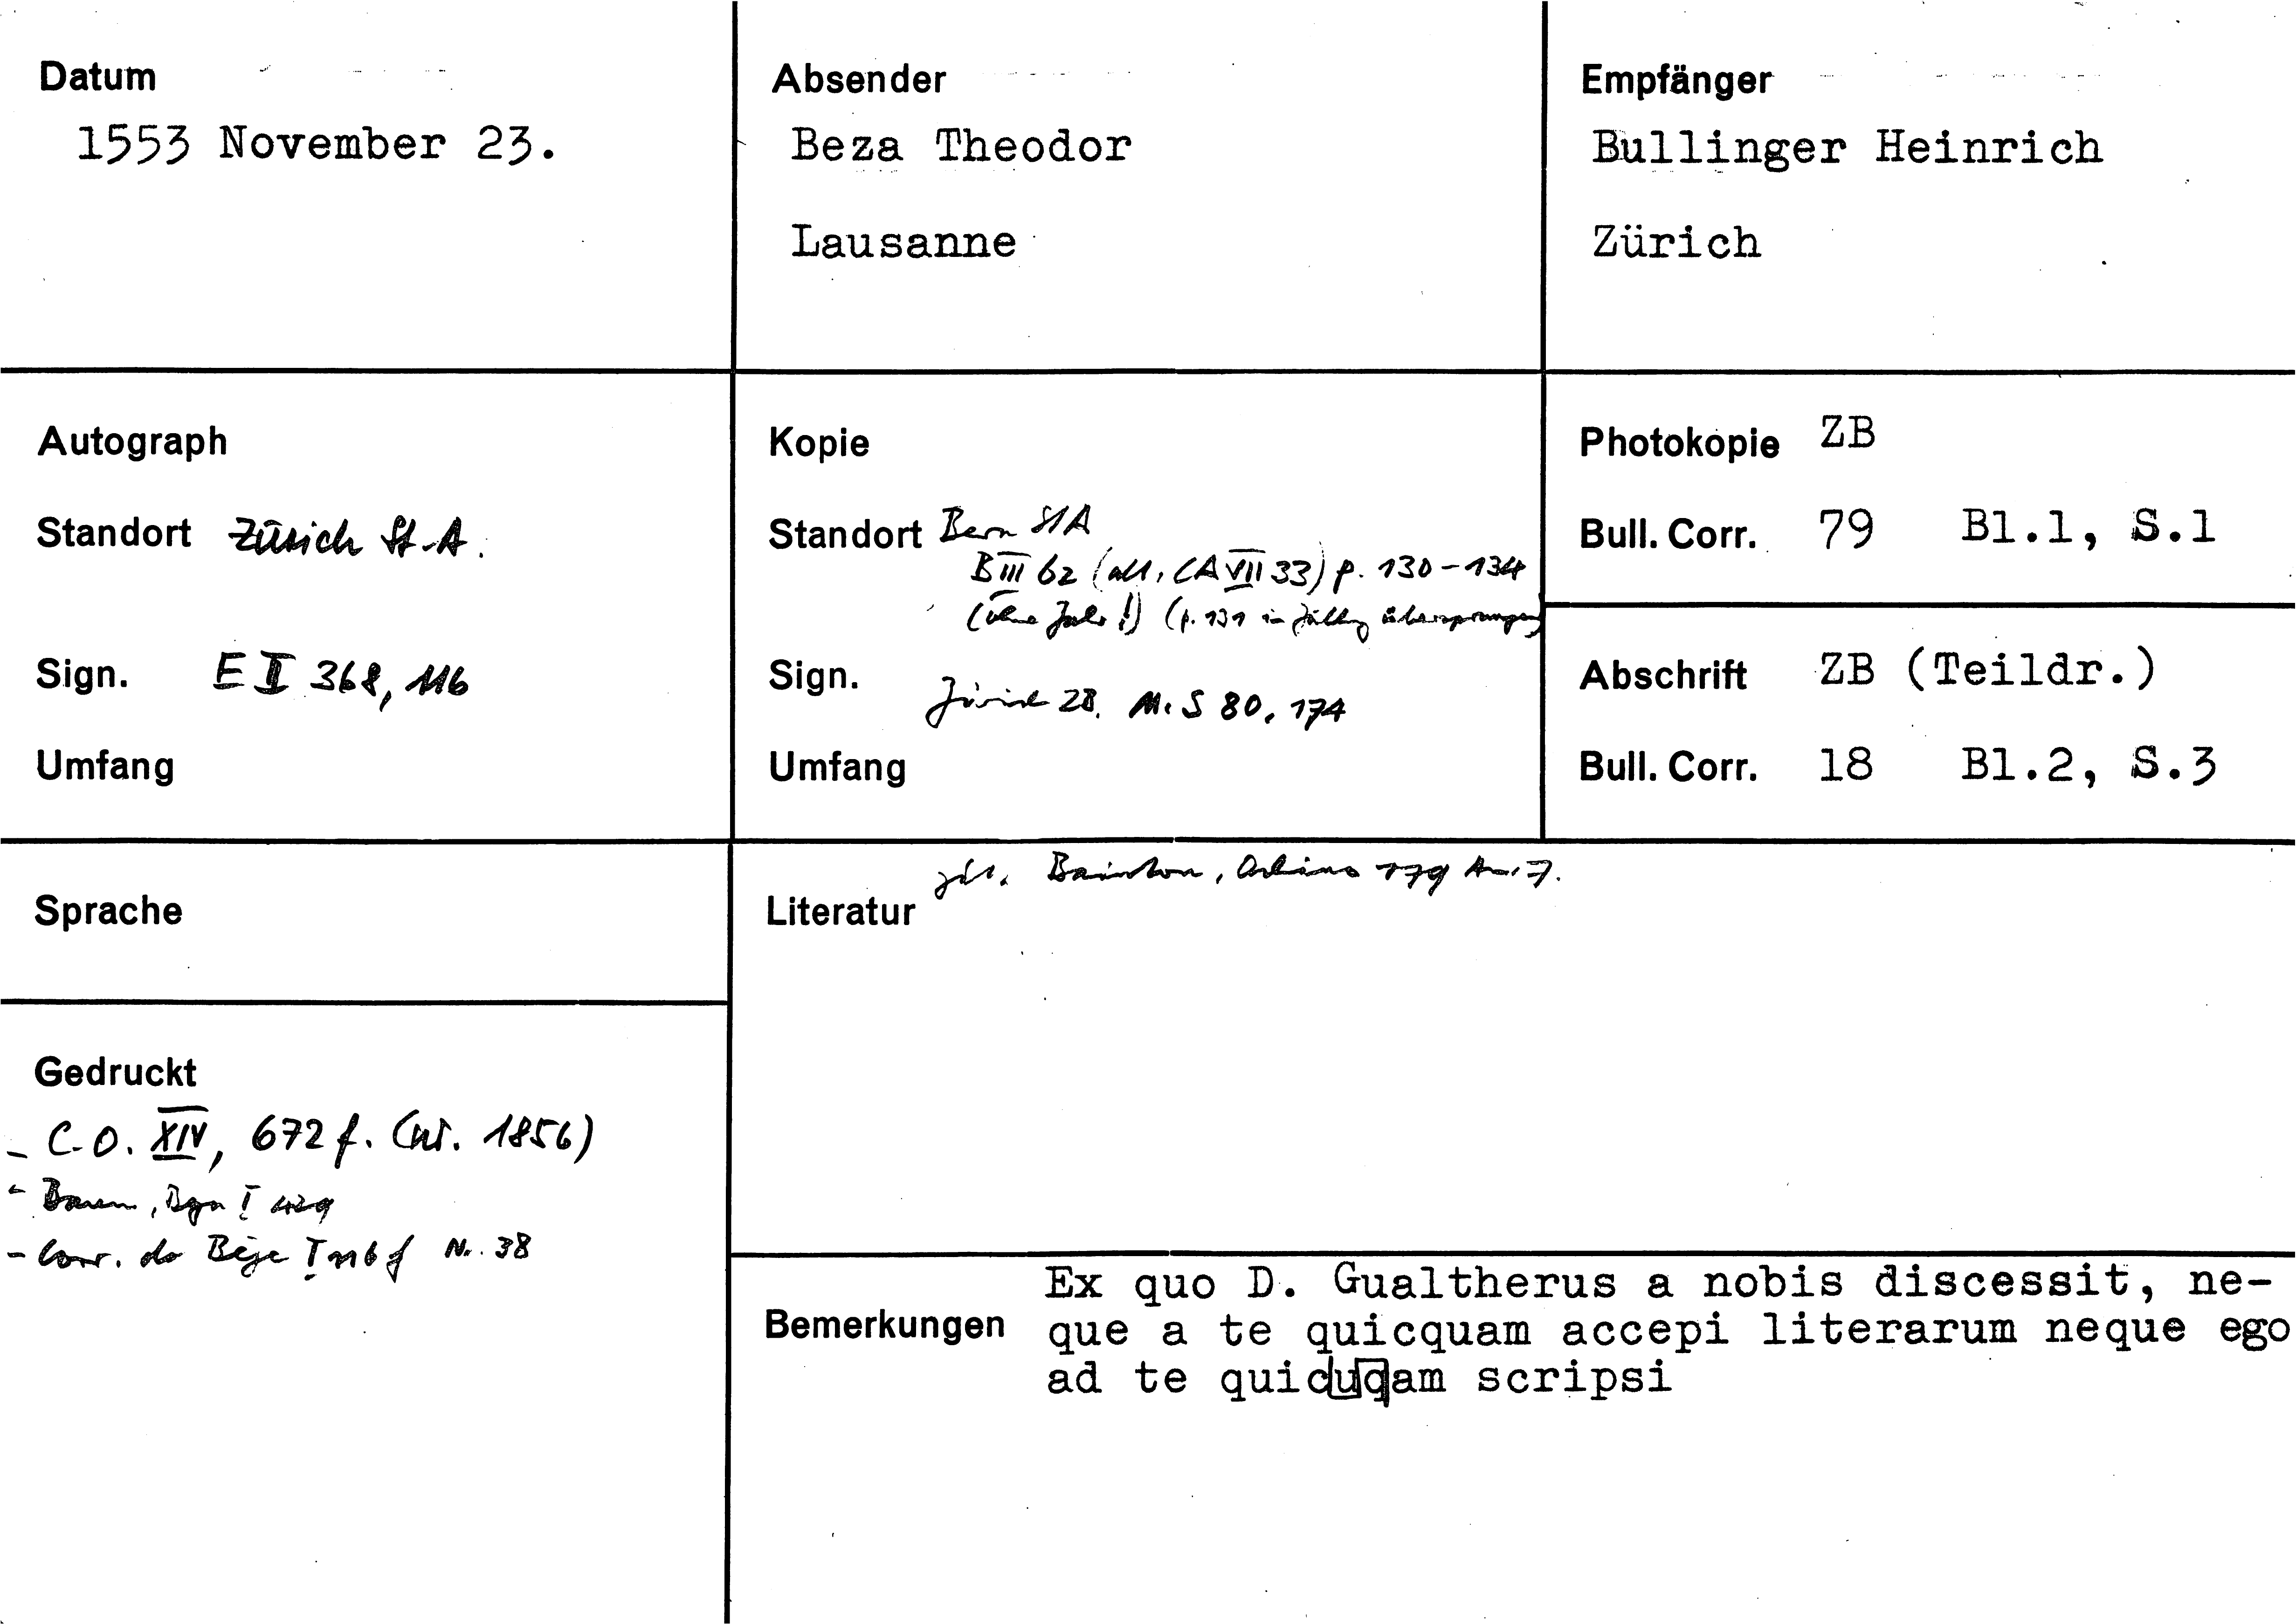 Datum
1553 November 23.
Absender
Beza Theodor
Lausanne
Empfänger
Bullinger Heinrich
Zürich
Autograph
Standort Zürich St.A.
Sign. E II 368, 116
Umfang
Kopie
Standort Bern StA
B III 62 (alt, CA VII 33) p. 130-134
(ohne Jahr!) (p. 131 in Zählg übersprungen)
Sign. Zürich ZB. Ms S 80, 174
Umfang
Photokopie ZB
Bull. Corr. 79 Bl.1, S.1
Abschrift ZB (Teildr.)
Bull. Corr. 18 Bl.2, S.3
Sprache
Literatur zit. Bainton, Ochino 179 Anm. 7.
Gedruckt
- C.O. XIV, 672 f. (Nr. 1856)
- Baum, Beza I
- Corr. de Bèze I 116 f N. 38
Bemerkungen
Ex quo D. Gualtherus a nobis discessit, ne-
que a te quicquam accepi literarum neque ego
ad te quicuqam scripsi